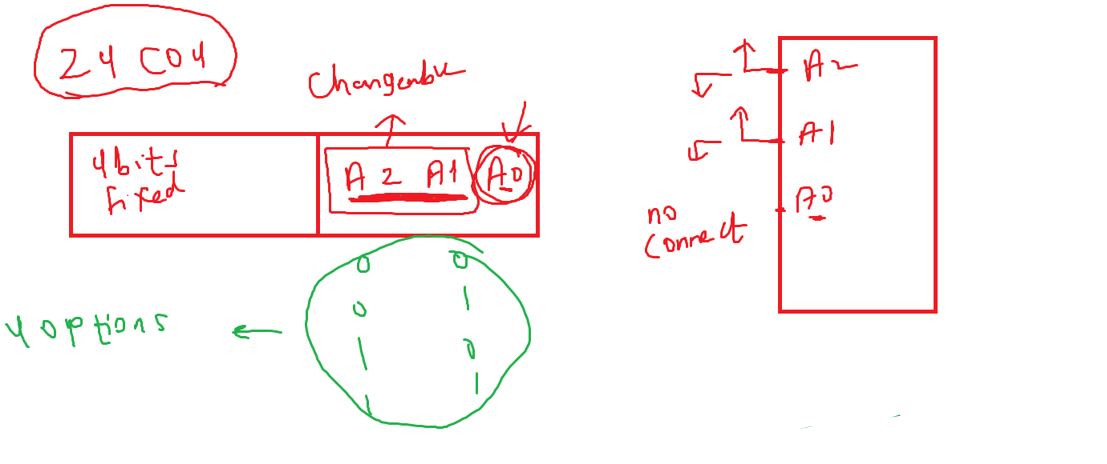 24 C04
Changeable
4 bits
fixed
A2 A1 A0
0 0
0 1
1 0
1 1
4 options
A2
A1
A0
no
connect